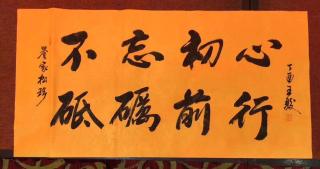 不忘初心
砥礪前行
丁酉